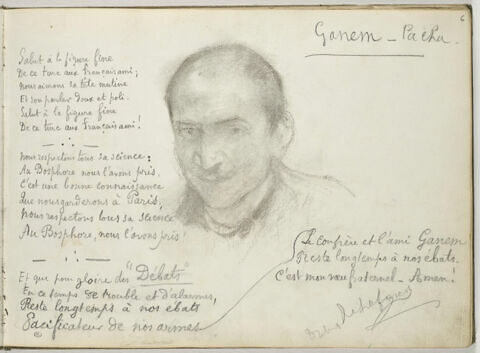 6
Ganem - Pacha.
Salut à la figure fière
De ce turc aux français ami;
Nous aimons sa tête mutine
Et son parler doux et poli.
Salut à la figure fière
De ce turc aux français ami!
Nous respectons tous sa science:
Au Bosphore nous l'avons pris.
C'est une bonne connaissance
Que nous garderons à Paris,
Nous respectons tous sa science
Au Bosphore, nous l'avons pris!
Et que pour gloire des "Débats"
En ce temps de trouble et d'alarmes,
Reste longtemps à nos ébats
Pacificateur de nos armes
Le confrère et l'ami Ganem
Reste longtemps à nos ébats.
C'est mon vœu fraternel - Amen!